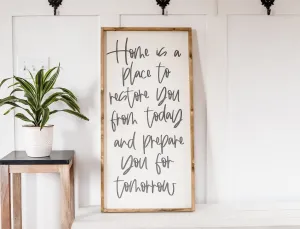 Home is a
place to
restore you
from today
and prepare
you for
tomorrow